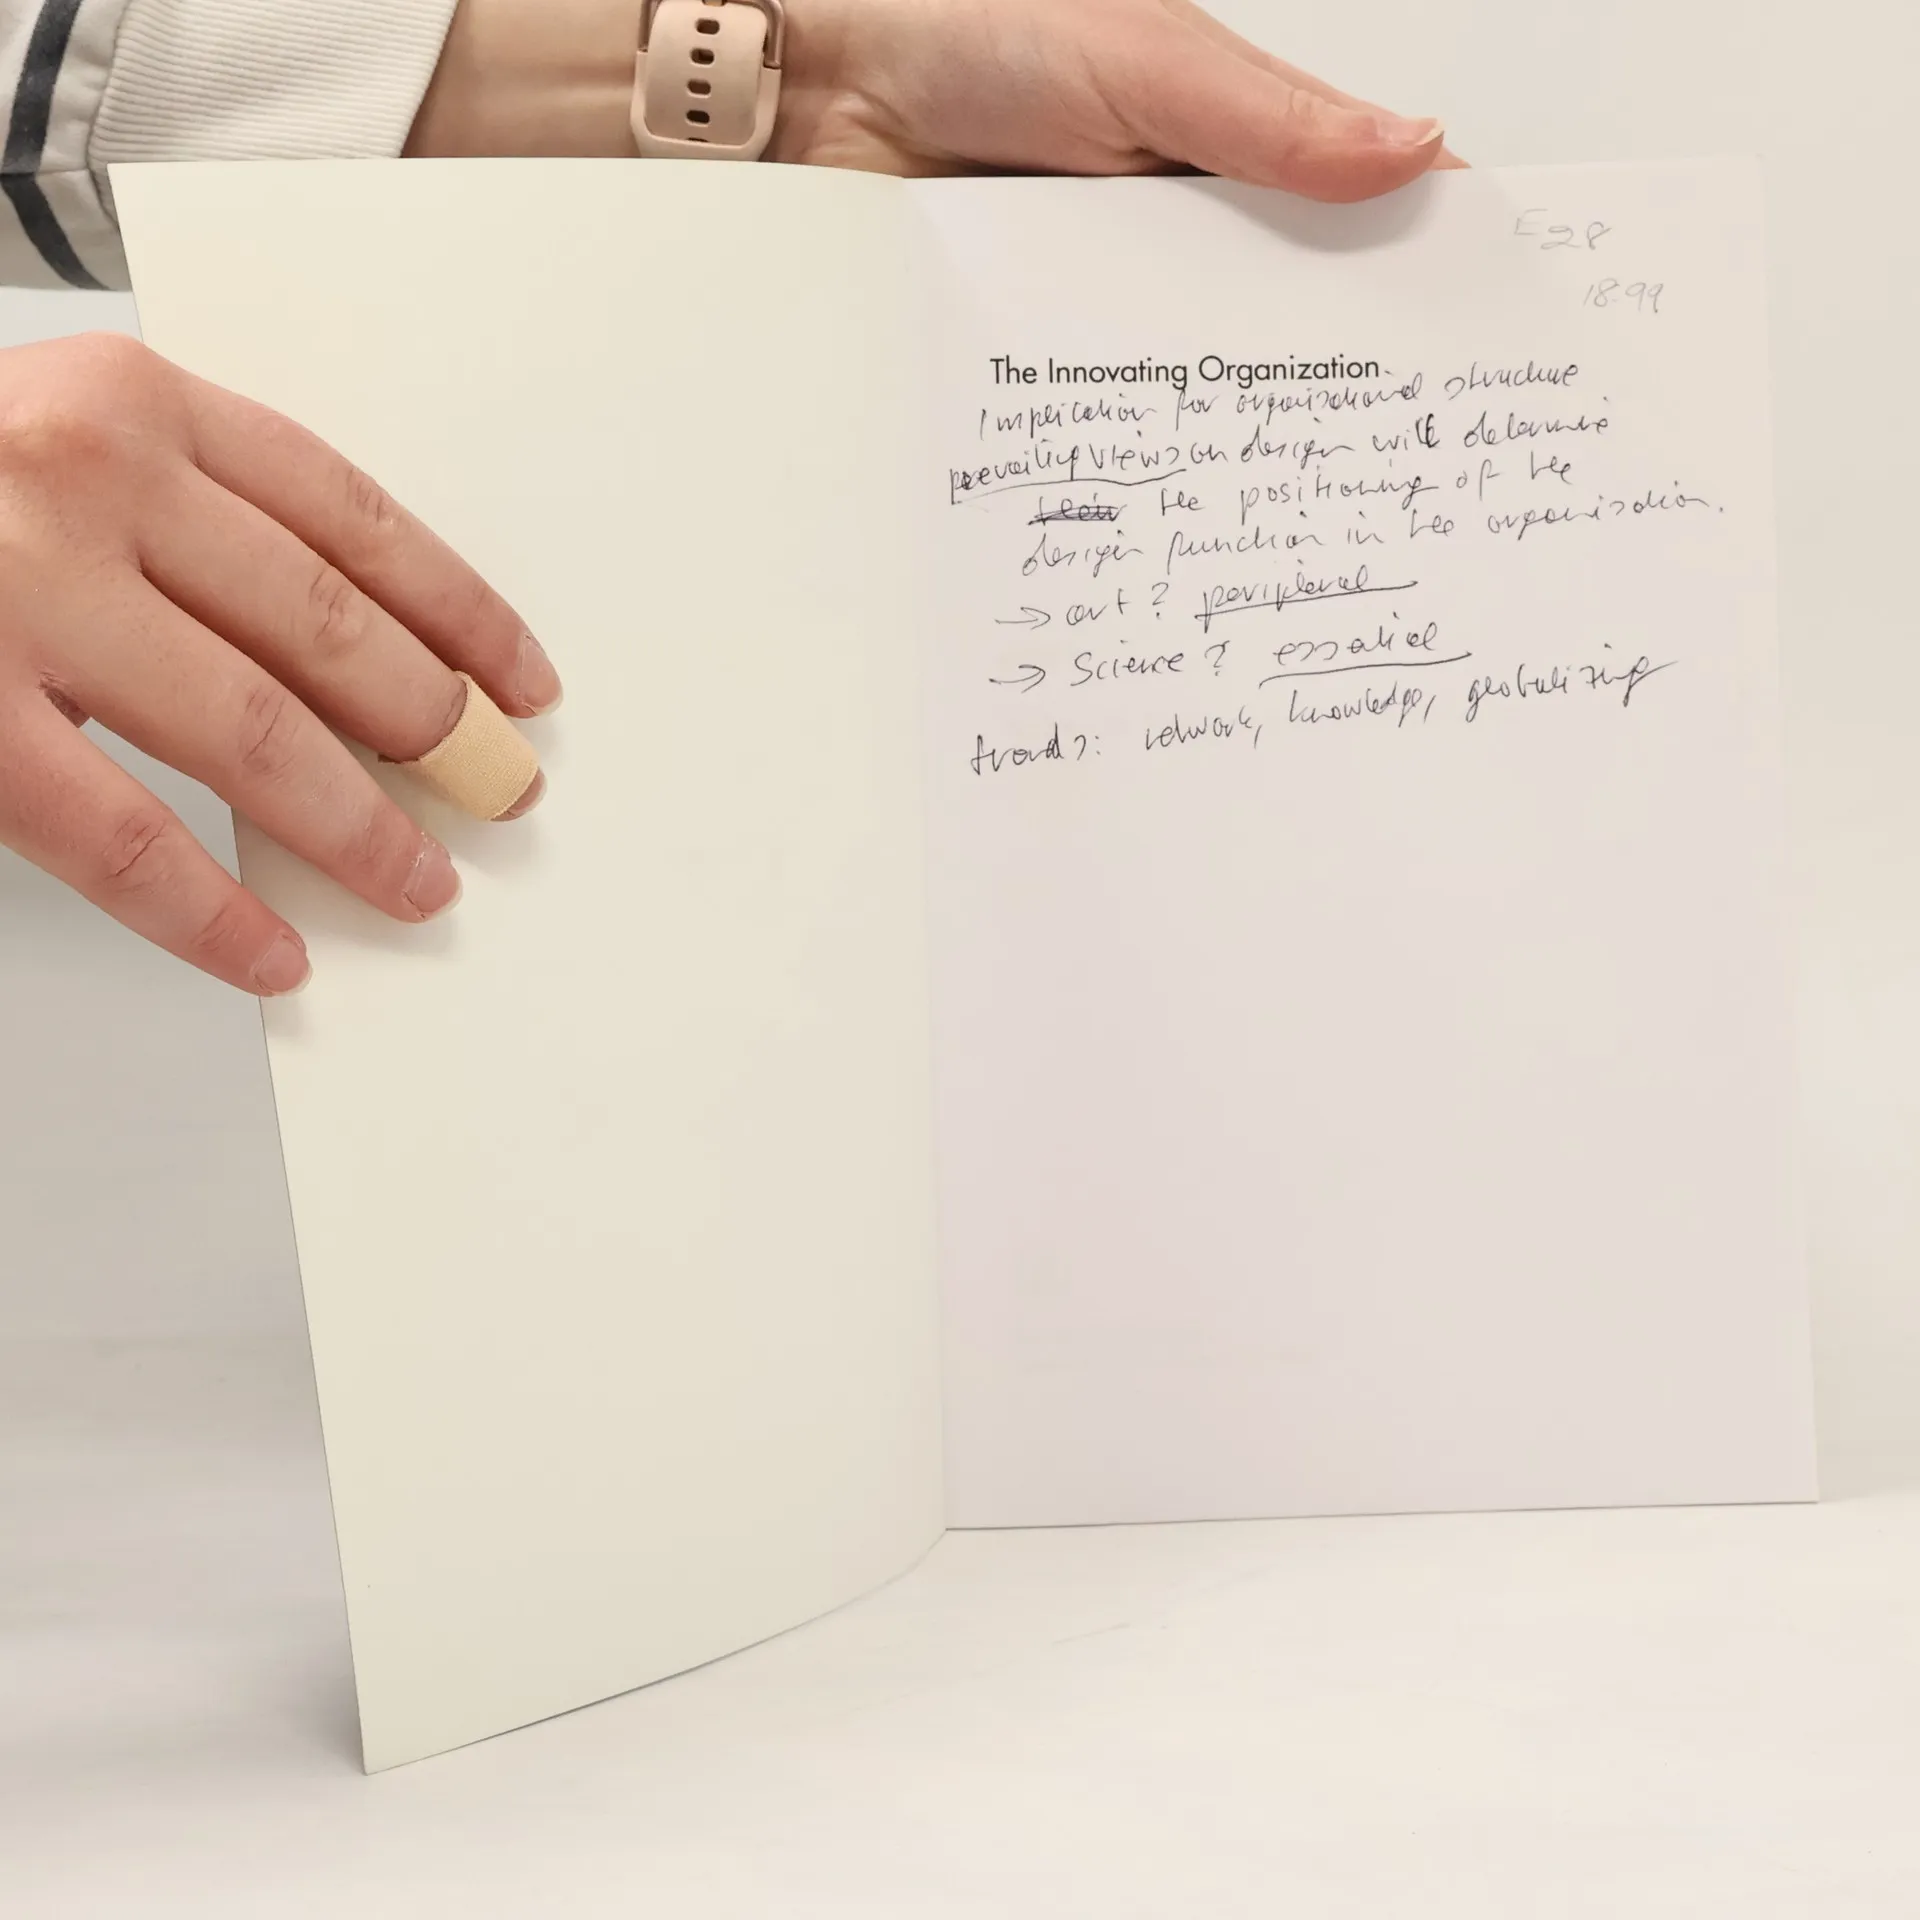 E28
18.99
The Innovating Organization
Implication for organisational structure
prevailing views on design will determine
their the positioning of the
design function in the organisation.
→ art? peripheral
→ Science? essential
trends: network, knowledge, globalizing